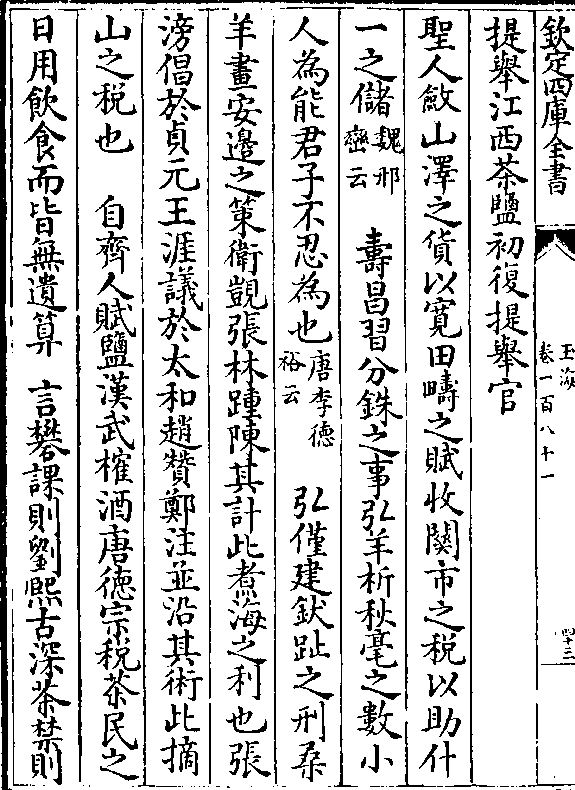 欽定四庫全書
玉海
卷一百八十一
四十三
提舉江西茶鹽初復提舉官
聖人斂山澤之貨以寛田疇之賦收關市之税以助什
一之儲魏邢巒云　壽昌習分銖之事弘羊析秋毫之數小
人為能君子不忍為也唐李德裕云　弘僅建釱趾之刑桑
羊畫安邉之策衛覬張林踵陳其計此煮海之利也張
滂倡於貞元王涯議於太和趙贊鄭注並沿其術此摘
山之税也　自齊人賦鹽漢武榷酒唐徳宗税茶民之
日用飲食而皆無遺算　言礬課則劉熈古深茶禁則